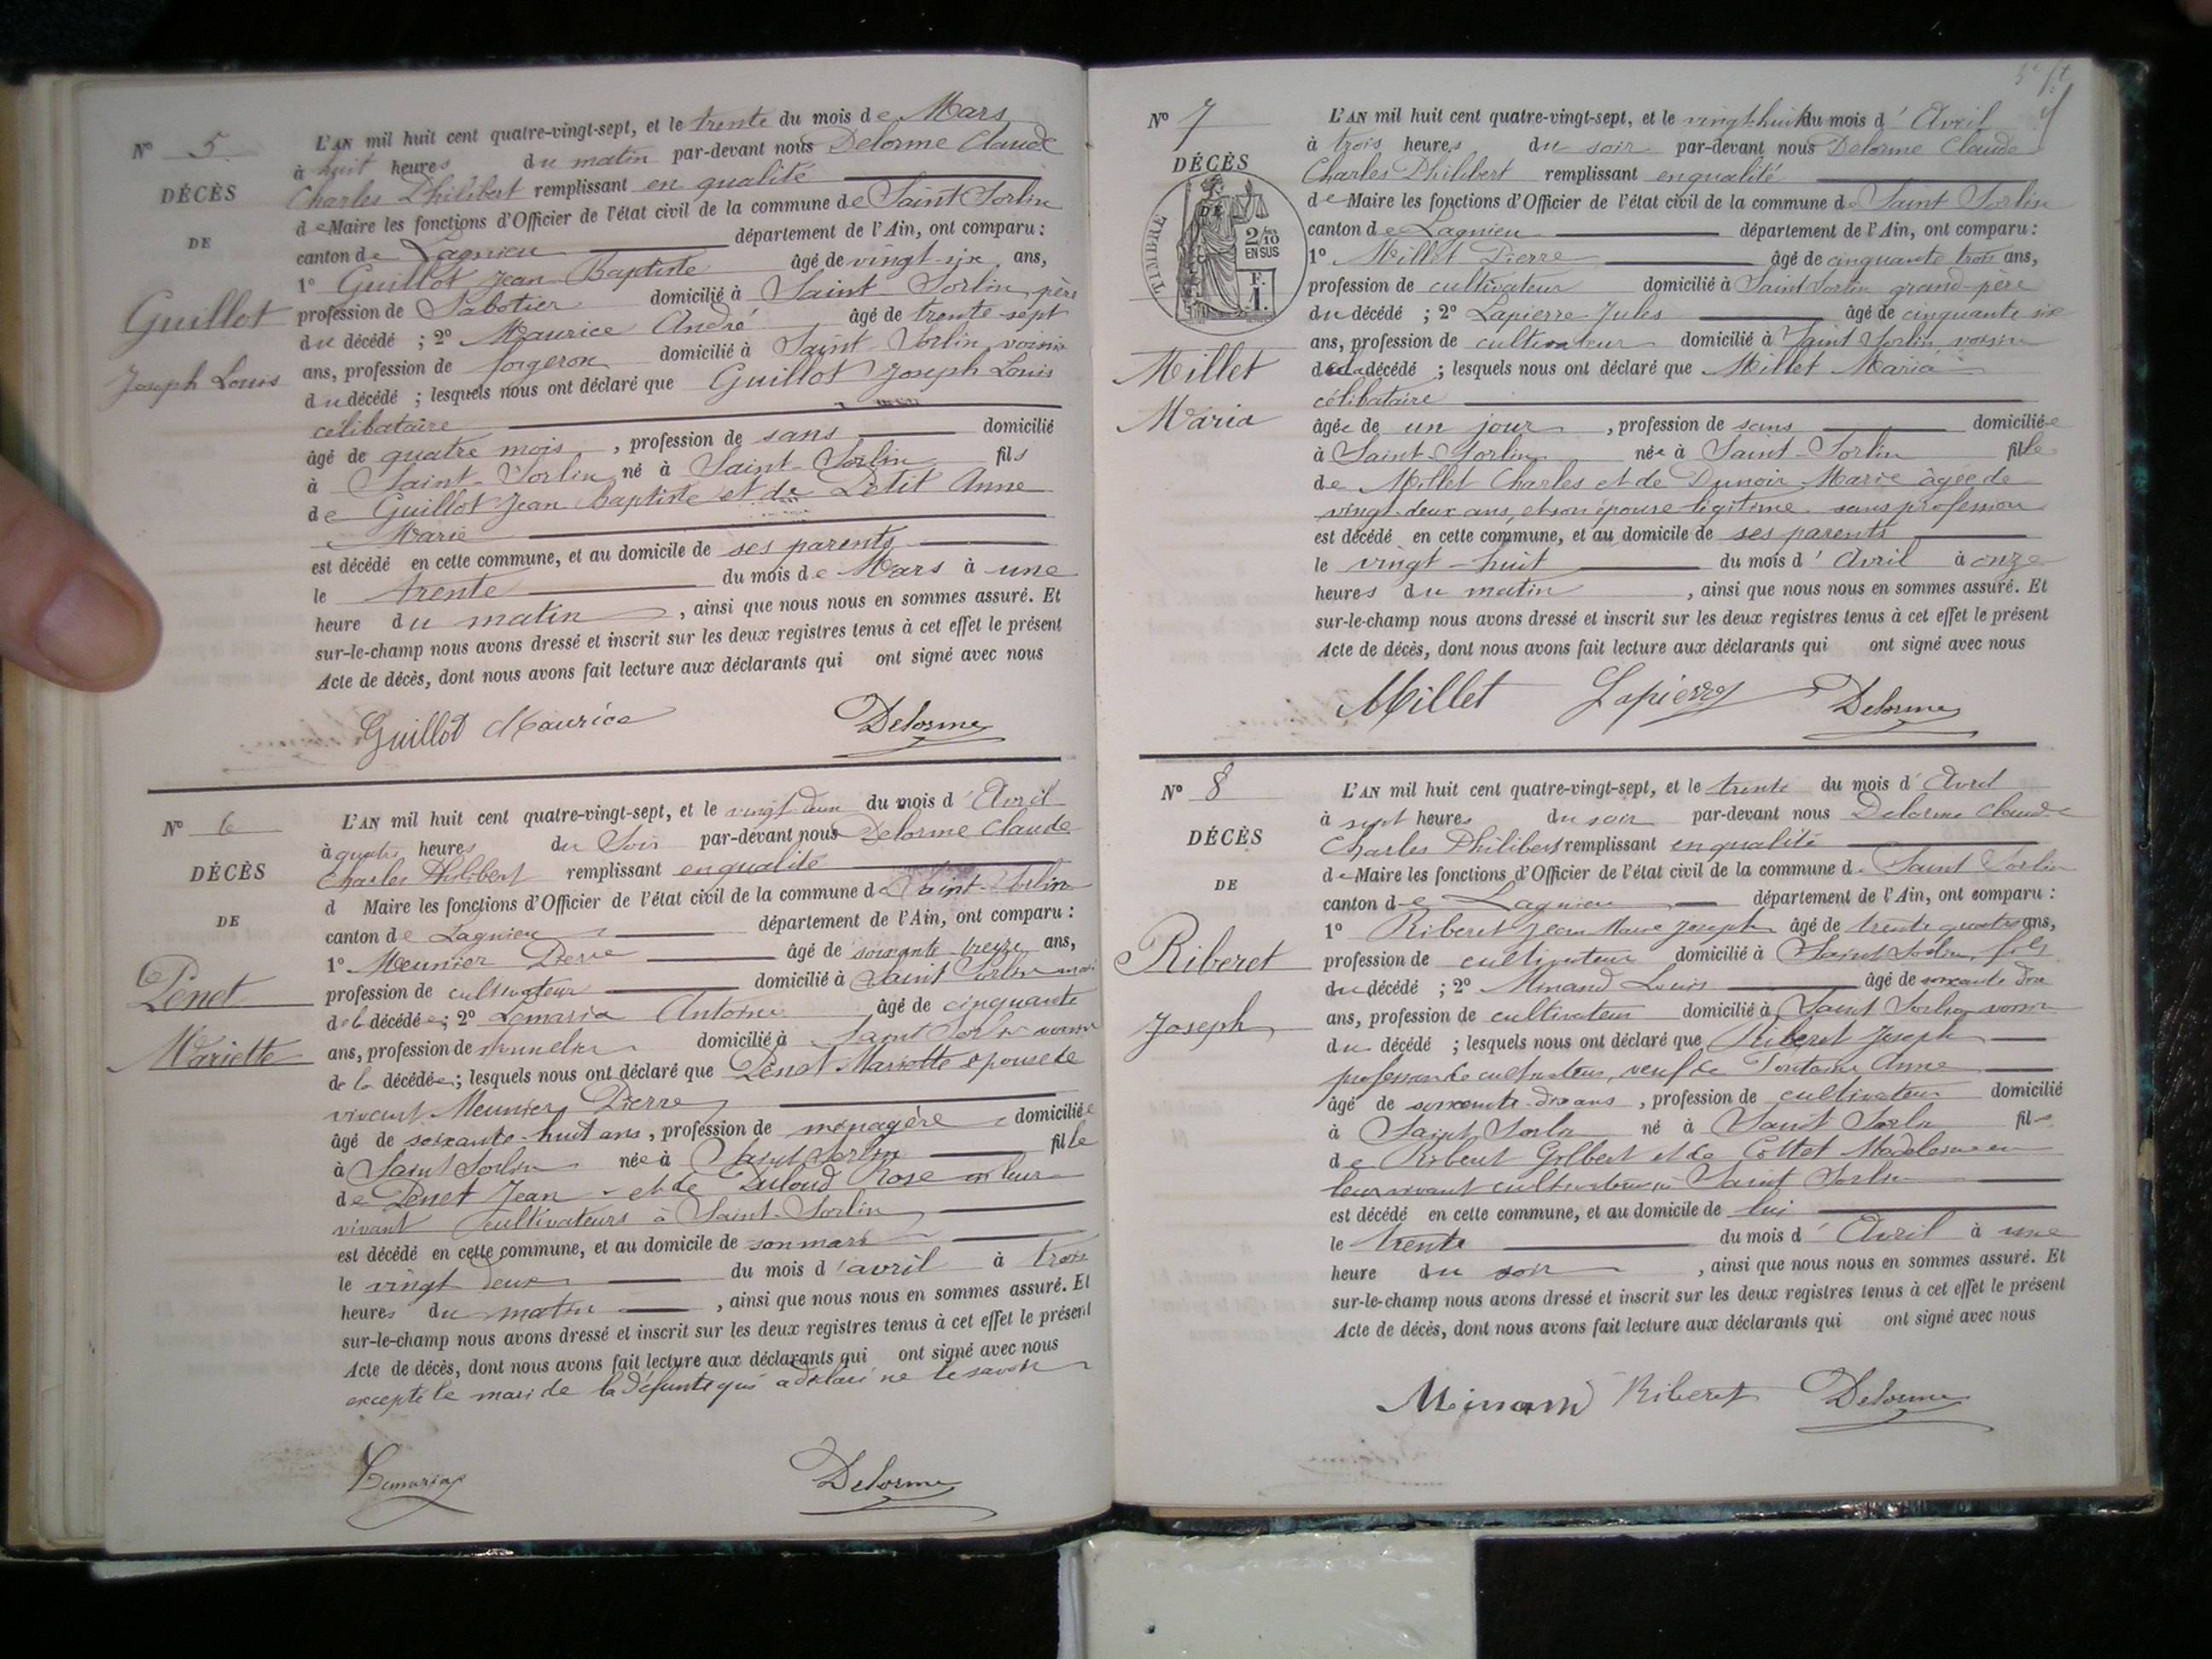 Nº 5
DÉCÈS
DE
Guillot
Joseph Louis
L'AN mil huit cent quatre-vingt-sept, et le trente du mois de Mars
à huit heures du matin par-devant nous Delorme Claude
Charles Philibert remplissant en qualité
de Maire les fonctions d'Officier de l'état civil de la commune de Saint Sorlin
canton de Lagnieu département de l'Ain, ont comparu :
1º Guillot Jean Baptiste âgé de vingt-six ans,
profession de Sabotier domicilié à Saint-Sorlin, père
du décédé ; 2º Maurice André âgé de trente-sept
ans, profession de forgeron domicilié à Saint-Sorlin, voisin
du décédé ; lesquels nous ont déclaré que Guillot Joseph Louis
célibataire
âgé de quatre mois , profession de sans domicilié
à Saint-Sorlin né à Saint-Sorlin fils
de Guillot Jean Baptiste et de Petit Anne
Marie
est décédé en cette commune, et au domicile de ses parents
le trente du mois de Mars à une
heure du matin , ainsi que nous nous en sommes assuré. Et
sur-le-champ nous avons dressé et inscrit sur les deux registres tenus à cet effet le présent
Acte de décès, dont nous avons fait lecture aux déclarants qui ont signé avec nous
Guillot Maurice Delorme
Nº 6
DÉCÈS
DE
Penet
Mariette
L'AN mil huit cent quatre-vingt-sept, et le vingt deux du mois d'Avril
à quatre heures du Soir par-devant nous Delorme Claude
Charles Philibert remplissant en qualité
d Maire les fonctions d'Officier de l'état civil de la commune de Saint-Sorlin
canton de Lagnieu département de l'Ain, ont comparu :
1º Meunier Pierre âgé de soixante-treize ans,
profession de cultivateur domicilié à Saint Sorlin mari
de la décédée ; 2º Lemaria Antoine âgé de cinquante
ans, profession de domicilié à Saint Sorlin voisin
de la décédée ; lesquels nous ont déclaré que Penet Mariette épouse de
vivant Meunier Pierre
âgé de soixante-huit ans , profession de ménagère domiciliée
à Saint Sorlin née à Saint Sorlin fille
de Penet Jean et de Duloud Rose en leur
vivant cultivateurs à Saint-Sorlin
est décédé en cette commune, et au domicile de son mari
le vingt deux du mois d'avril à trois
heures du matin , ainsi que nous nous en sommes assuré. Et
sur-le-champ nous avons dressé et inscrit sur les deux registres tenus à cet effet le présent
Acte de décès, dont nous avons fait lecture aux déclarants qui ont signé avec nous
excepté le mari de la défunte qui a déclaré ne le savoir
Lemaria Delorme
Nº 7
DÉCÈS
DE
TIMBRE
2/10
EN SUS
F.
1.
Millet
Maria
L'AN mil huit cent quatre-vingt-sept, et le vingt-huit du mois d'Avril
à trois heures du soir par-devant nous Delorme Claude
Charles Philibert remplissant en qualité
de Maire les fonctions d'Officier de l'état civil de la commune de Saint Sorlin
canton de Lagnieu département de l'Ain, ont comparu :
1º Millet Pierre âgé de cinquante trois ans,
profession de cultivateur domicilié à Saint Sorlin grand-père
du décédé ; 2º Lapierre Jules âgé de cinquante six
ans, profession de cultivateur domicilié à Saint Sorlin voisin
de la décédé ; lesquels nous ont déclaré que Millet Maria
célibataire
âgée de un jour , profession de sans domiciliée
à Saint-Sorlin née à Saint-Sorlin fille
de Millet Charles et de Dunoir Marie âgée de
vingt-deux ans, et son épouse légitime sans profession
est décédé en cette commune, et au domicile de ses parents
le vingt-huit du mois d'Avril à onze
heures du matin , ainsi que nous nous en sommes assuré. Et
sur-le-champ nous avons dressé et inscrit sur les deux registres tenus à cet effet le présent
Acte de décès, dont nous avons fait lecture aux déclarants qui ont signé avec nous
Millet Lapierre Delorme
Nº 8
DÉCÈS
DE
Riberet
Joseph
L'AN mil huit cent quatre-vingt-sept, et le trente du mois d'Avril
à sept heures du soir par-devant nous Delorme Claude
Charles Philibert remplissant en qualité
de Maire les fonctions d'Officier de l'état civil de la commune de Saint Sorlin
canton de Lagnieu département de l'Ain, ont comparu :
1º Riberet Jean Marie Joseph âgé de trente quatre ans,
profession de cultivateur domicilié à Saint Sorlin fils
du décédé ; 2º Minand Louis âgé de soixante dix
ans, profession de cultivateur domicilié à Saint Sorlin voisin
du décédé ; lesquels nous ont déclaré que Riberet Joseph
profession de cultivateur, veuf de Fontaine Anne
âgé de soixante-dix ans , profession de cultivateur domicilié
à Saint Sorlin né à Saint Sorlin fils
de Riberet Gilbert et de Cottet Madeleine en
leur vivant cultivateurs à Saint Sorlin
est décédé en cette commune, et au domicile de lui
le trente du mois d'Avril à une
heure du soir , ainsi que nous nous en sommes assuré. Et
sur-le-champ nous avons dressé et inscrit sur les deux registres tenus à cet effet le présent
Acte de décès, dont nous avons fait lecture aux déclarants qui ont signé avec nous
Minand Riberet Delorme